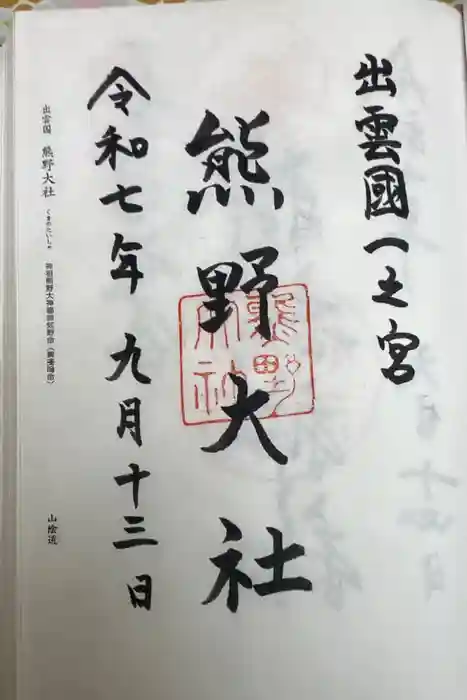 出雲國一之宮
熊野大社
熊野
大社
令和七年九月十三日
出雲国 熊野大社 くまのたいしゃ
山陰道